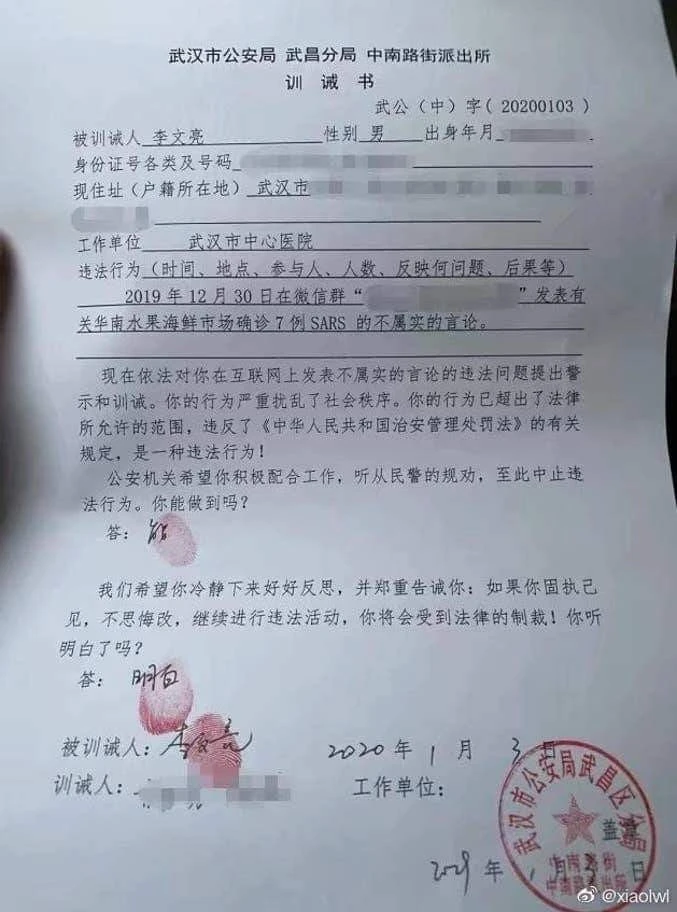 武汉市公安局 武昌分局 中南路街派出所
训 诫 书
武公（中）字（20200103）
被训诫人 李文亮 性别 男 出身年月
身份证号各类及号码
现住址（户籍所在地）武汉市
工作单位 武汉市中心医院
违法行为（时间、地点、参与人、人数、反映何问题、后果等）
2019年12月30日在微信群“ ”发表有
关华南水果海鲜市场确诊7例SARS的不属实的言论。
现在依法对你在互联网上发表不属实的言论的违法问题提出警
示和训诫。你的行为严重扰乱了社会秩序。你的行为已超出了法律
所允许的范围，违反了《中华人民共和国治安管理处罚法》的有关
规定，是一种违法行为！
公安机关希望你积极配合工作，听从民警的规劝，至此中止违
法行为。你能做到吗？
答：能
我们希望你冷静下来好好反思，并郑重告诫你：如果你固执己
见，不思悔改，继续进行违法活动，你将会受到法律的制裁！你听
明白了吗？
答：明白
被训诫人：李文亮 2020年1月3日
训诫人： 工作单位：
武汉市公安局武昌区分局
盖章
中南路街
派出所
年1月3日
@xiaolwl